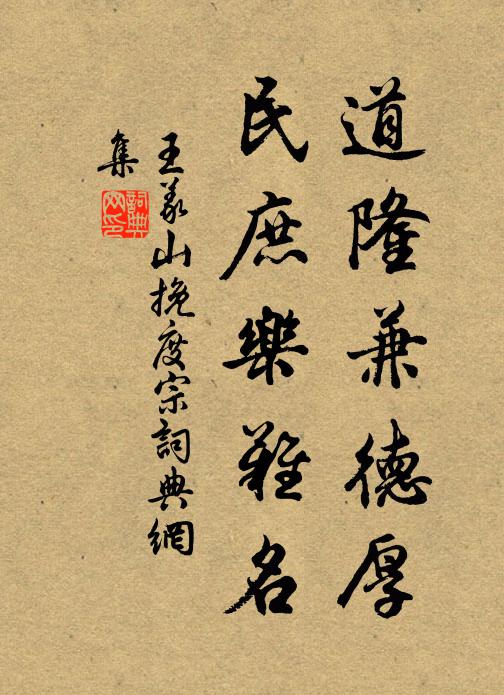 道隆兼德厚
民庶樂難名
王義山挽度宗詞典網
集
詞典網印